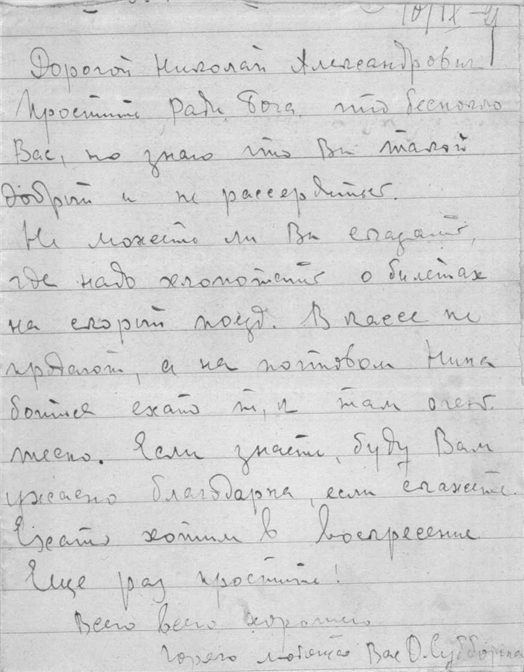 10/IX – 4
Дорогой Николай Александрович!
Простите ради Бога, что беспокою
Вас, но знаю что Вы такой
добрый и не рассердитесь.
Не можете ли Вы сказать,
где надо хлопотать о билетах
на скорый поезд. В кассе не
продают, а на почтовом Нина
боится ехать т, к там очень
тесно. Если знаете, буду Вам
ужасно благодарна, если скажете.
Ехать хотим в воскресение
Еще раз простите!
Всего всего хорошего
горячо любящая Вас О. Субботина